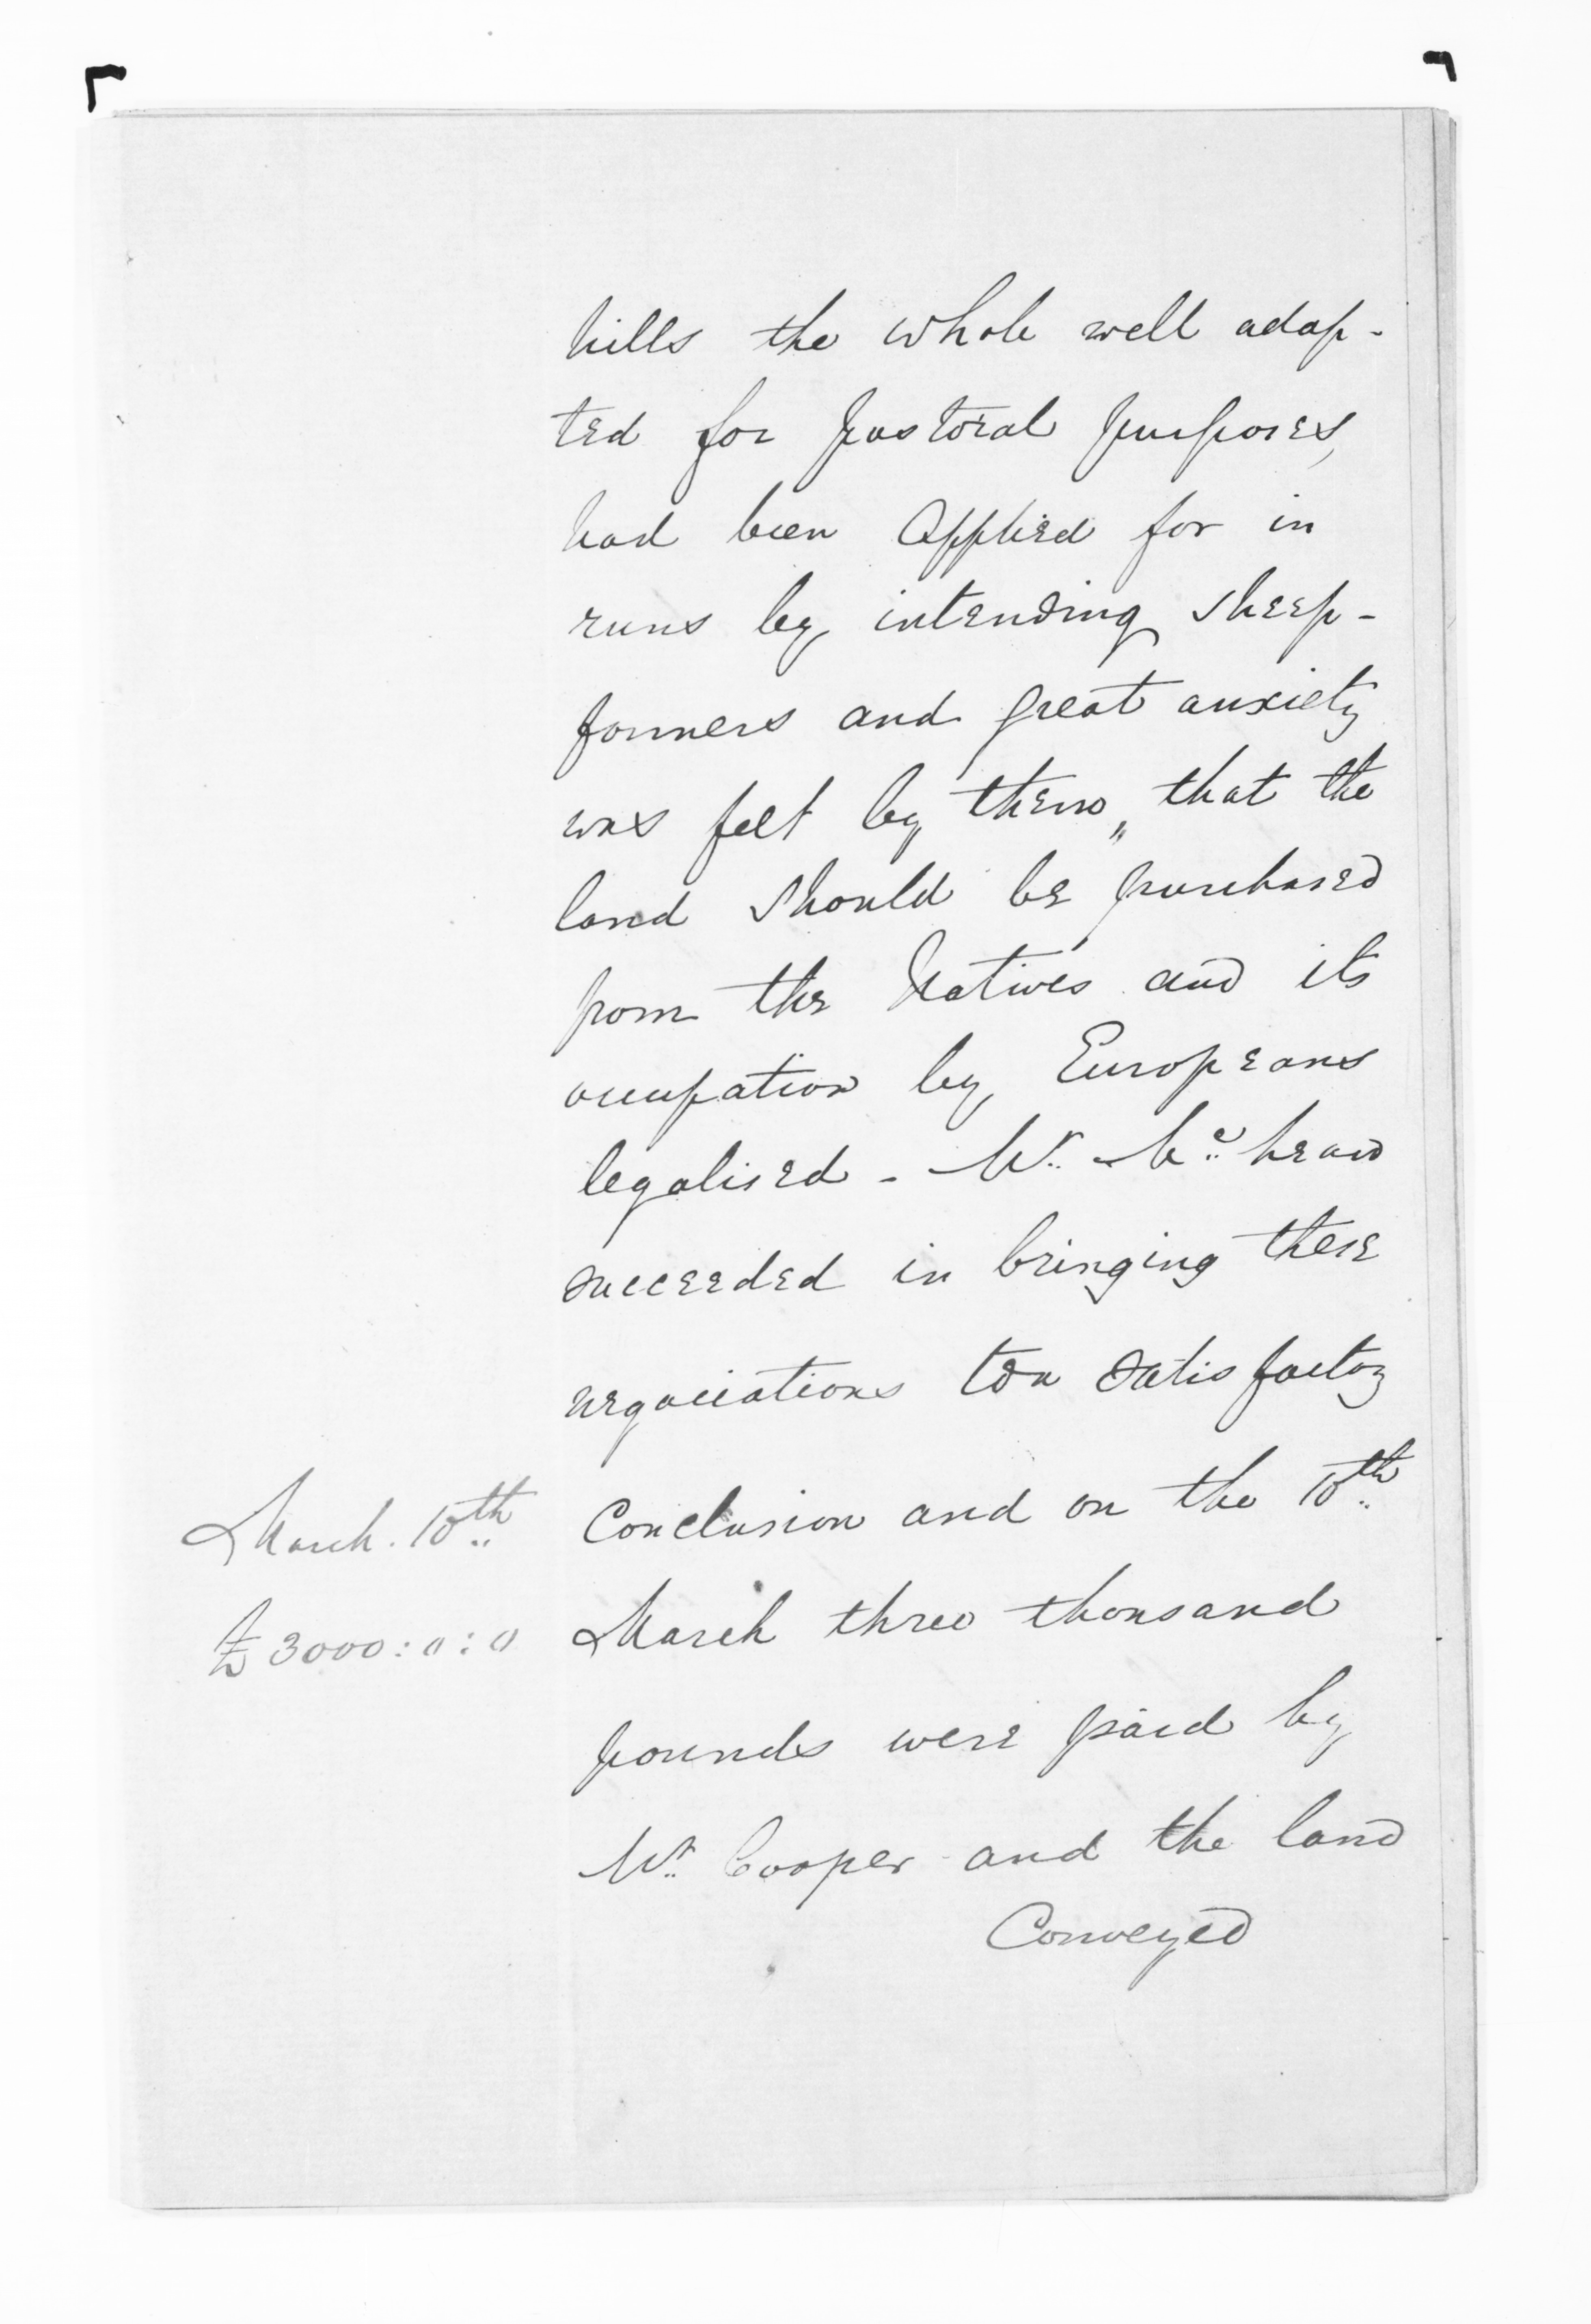 hills the whole well adap-
ted for pastoral purposes,
had been applied for in
runs by intending sheep-
farmers and great anxiety
was felt by them„ that the
land should be purchased
from the Natives and its
occupation by Europeans
legalised - Mr. McLean
succeeded in bringing these
negociations to a satisfactory
March. 10th Conclusion and on the 10th
£3000:0:0 March three thousand
pounds were paid by
Mr. Cooper and the land
Conveyed